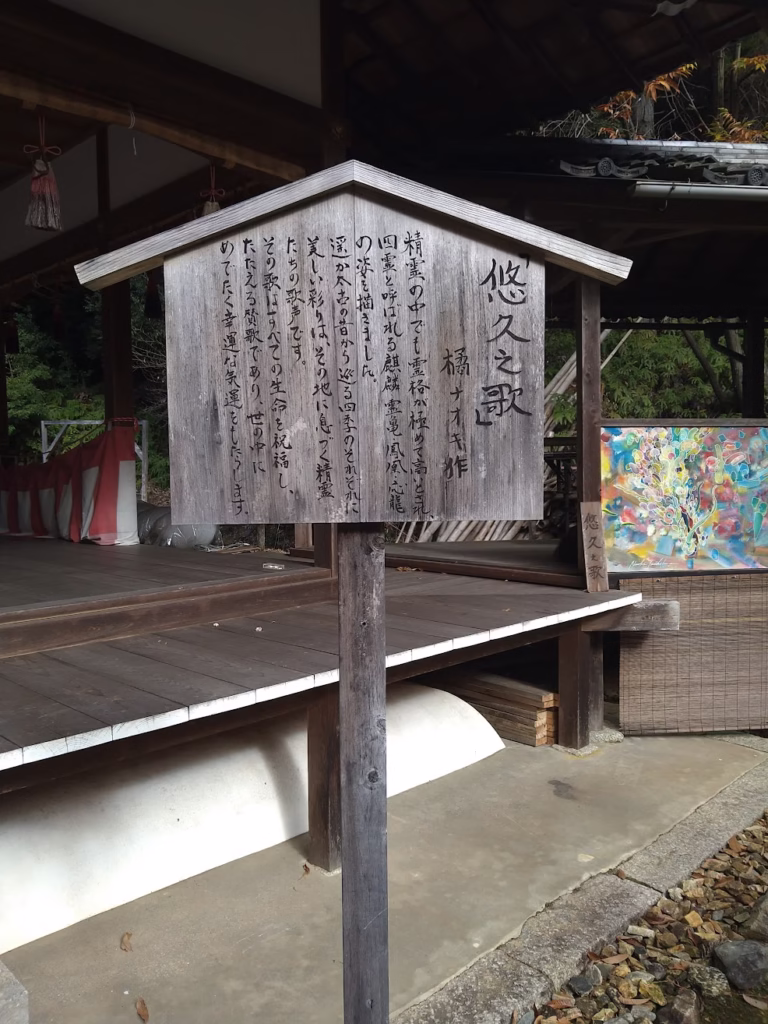 「悠久之歌」
橘ナオキ作
精霊の中でも霊格が極めて高いとされ、
四霊と呼ばれる麒麟霊亀鳳凰応龍
の姿を描きました。
遥か太古の昔から巡る四季のそれぞれに
美しい彩りは、その地に息づく精霊
たちの歌声です。
その歌はすべての生命を祝福し、
たたえる賛歌であり、世の中に
めでたく幸運な気運をもたらします。
悠久之歌